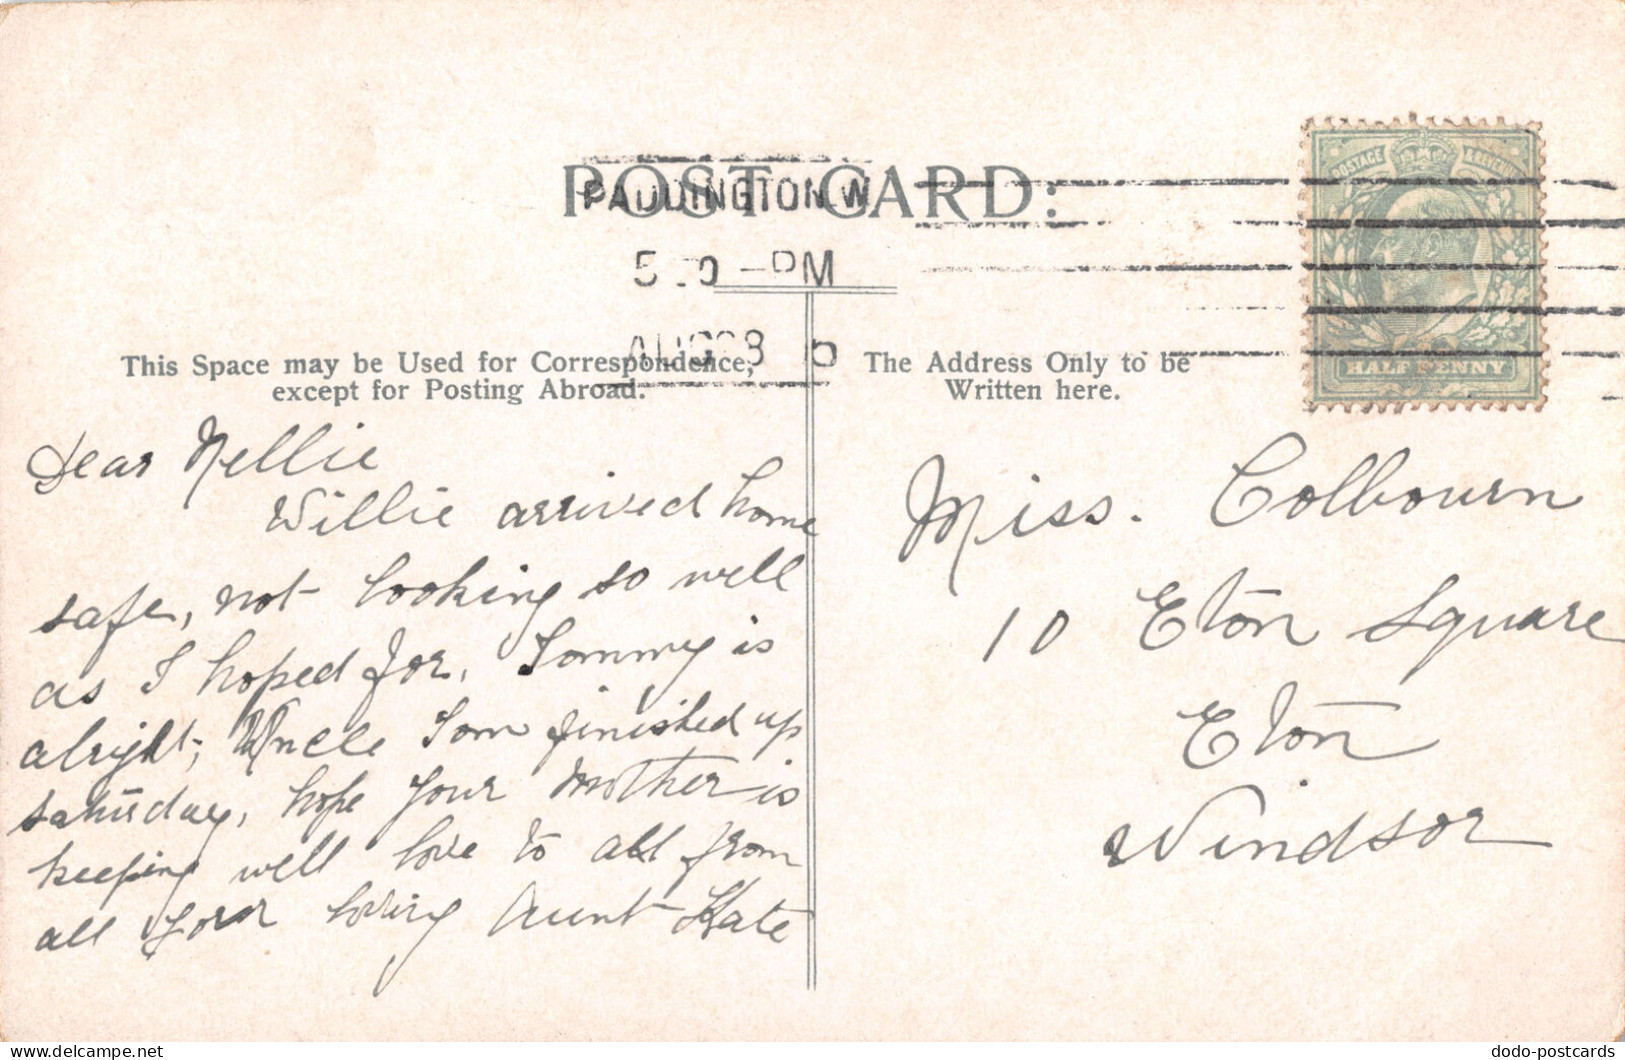 POST CARD:
PADDINGTON. W
PM
AUG
POSTAGE & REVENUE
HALFPENNY
This Space may be Used for Correspondence,
except for Posting Abroad.
The Address Only to be
Written here.
Dear Nellie
Willie arrived home
safe, not looking so well
as I hoped for, Tommy is
alright, Uncle Tom finished up
saturday, hope your mother is
keeping well love to all from
all your loving Aunt Kate
Miss. Colbourn
10 Eton Square
Eton
Windsor
dodo-postcards